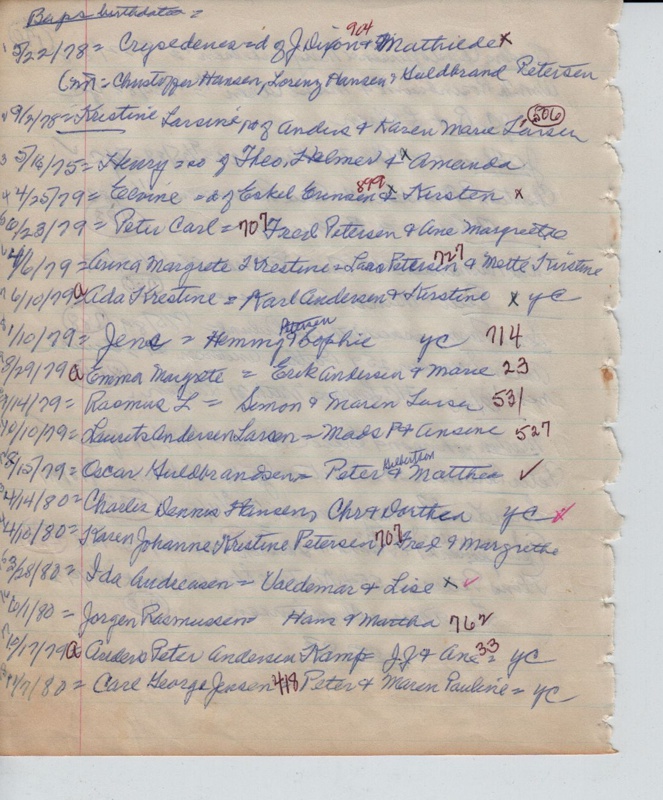 Baps birthdate =
1 5/22/78 = Crysedenes = d of J Dixon 904 & Mathiede x
(sp) = Christoffer Hansen, Lorenz Hansen & Guldbrand Petersen
9/2/78 = Kristine Larsine, of Anders & Karen Marie Larsen 506
3 5/16/75 = Henry = so of Theo, Helmer & x Amanda
4 4/25/79 = Elvine = d of Eskel Erensen 899 & x Kirsten x
/23/79 = Peter Carl = 707 Fred Petersen & Ane Margrethe
/6/79 = Anna Margrete Krestine = Lars Petersen 727 & Mette Kirstine
6/10/79 a Ada Krestine = Karl Andersen & Kirstine x yc
/10/79 = Jens = Hemming Petersen & Sophie yc 714
/29/79 a Emma Margrete = Erik Andersen & Marie 23
/14/79 = Rasmus L = Simon & Maren Larsen 531
10/10/79 = Laurets Andersen Larsen = Mads P & Ansine 527
/15/79 = Oscar Guldbrandsen = Peter Gilbertson & Matthea ✓
/14/80 = Charles Dennis Hansen, Chr & Dorthea yc x
/10/80 = Karen Johanne Kristine Petersen, 707 Fred & Margrethe
/28/80 = Ida Andreasen = Valdemar & Lise x ✓
/1/80 = Jorgen Rasmussen = Hans & Martha 762
/17/79 a Anders Peter Andersen Kamp = J J & Ane 33 = yc
/7/80 = Carl George Jensen 418 Peter & Maren Pauline = yc